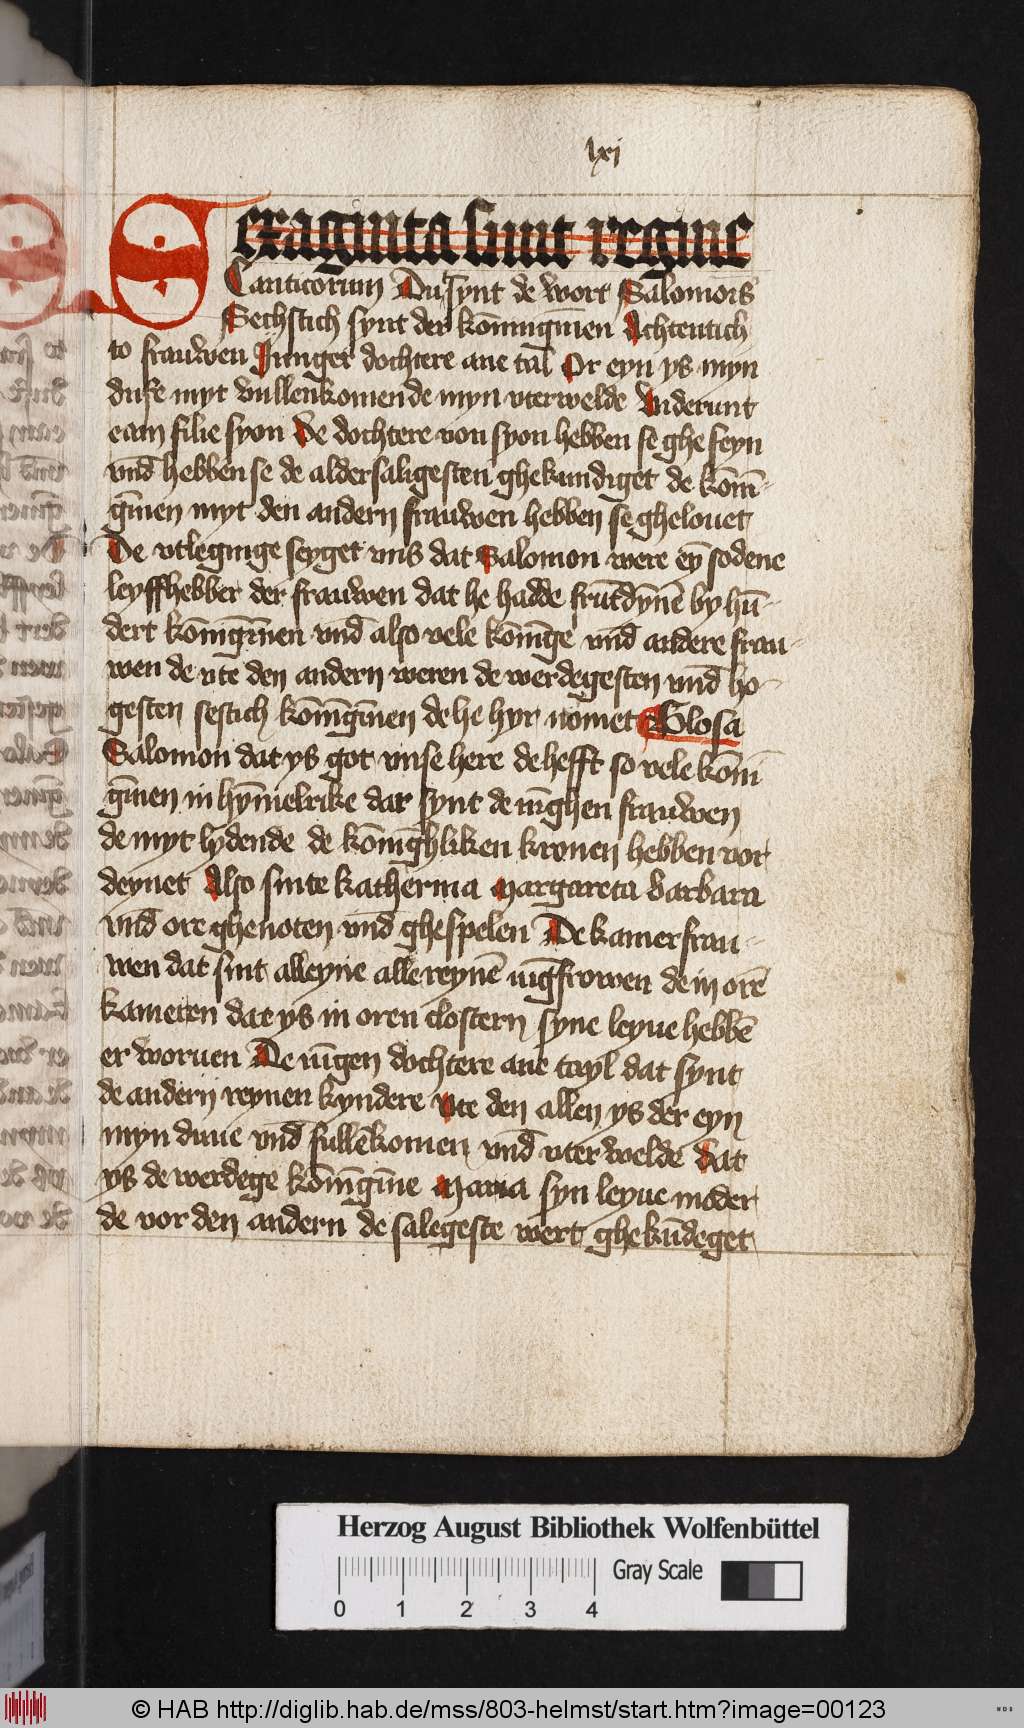 lxi
Sexaginta sunt regine
Canticorum Du synt de wort Salomoris
Sechstich synt der kōnnigīnen Achtentich
to frauwen Junger dochtere ane tal Or eyn ys myn
dufe myt vullenkomende myn vterwelde Viderunt
eam filie syon De dochtere von syon hebben se ghe seyn
vnd̄ hebben se de aldersaligesten ghekundiget de kōnī-
gīnen myt den andern frauwen hebben se ghelouet
De vtleginge seyget vns dat Salomon were eȳ sodene
leyffhebber der frauwen dat he hadde frūtdȳnē by hū-
dert kōnīgīnen vnd̄ also vele kōnīge vnd̄ andere frau-
wen de vte den andern weren de werdegesten vnd̄ ho-
gesten sestich kōnīgīnen de he hyr nomet Glosa
Salomon dat ys got vnse here de hefft so vele kōni
gīnen in hȳmelrike dar synt de iūghen frauwen
de myt lydende de kōnīghliken kronen hebben vor
deynet Also sinte katherina margareta barbara
vnd̄ ore ghenoten vnd̄ ghespelen De kamerfrau-
wen dat sint alleyne alle reynē iūgfrowen de in orē
kameren dat ys in oren clostern syne leyue hebbē
er woruen De iūgen dochtere ane tayl dat synt
de andern reynen kyndere vte den allen ys der eyn
myn duue vnd̄ fullēkomen vnd̄ vterwelde dat
ys de werdege kōnīgīne maria syn leyue moder
de vor den andern de salegeste wert ghekūdeget
Herzog August Bibliothek Wolfenbüttel
Gray Scale
0 1 2 3 4
© HAB http://diglib.hab.de/mss/803-helmst/start.htm?image=00123